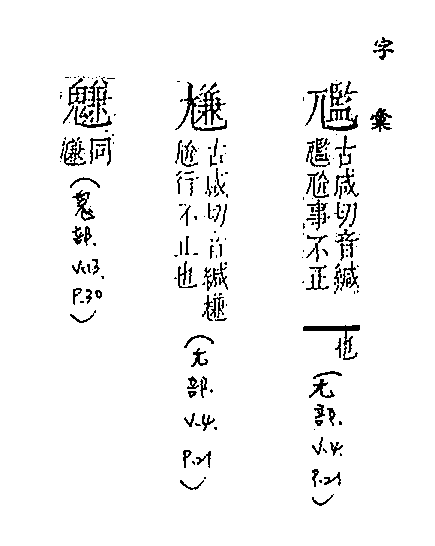 字彙
尷
古咸切音緘
尷尬事不正
也
(尢部. V.4. P.21)
尲
古咸切音緘尲
尬行不止也
(尢部. V.4. P.21)
同
尲
(鬼部. V.13. P.30)